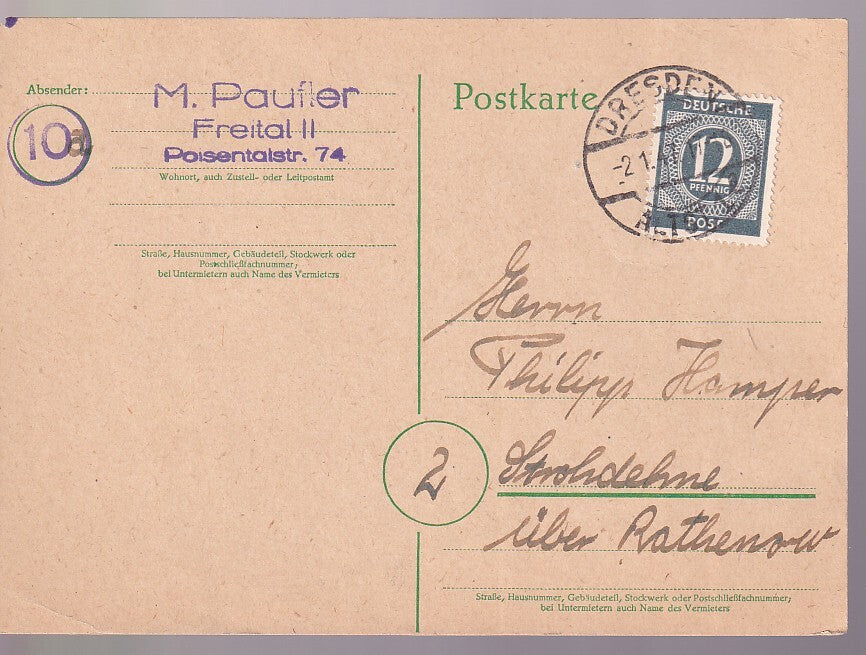 Absender:
M. Paufler
Freital II
Poisentalstr. 74
10a
Wohnort, auch Zustell- oder Leitpostamt
Straße, Hausnummer, Gebäudeteil, Stockwerk oder
Postschließfachnummer;
bei Untermietern auch Name des Vermieters
Postkarte
DRESDEN
-2.1.
ALTST
DEUTSCHE
12
PFENNIG
POST
Herrn
Philipp Hamper
2
Strohdehne
über Rathenow
Straße, Hausnummer, Gebäudeteil, Stockwerk oder Postschließfachnummer;
bei Untermietern auch Name des Vermieters